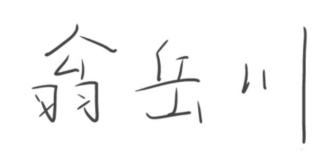 翁岳川